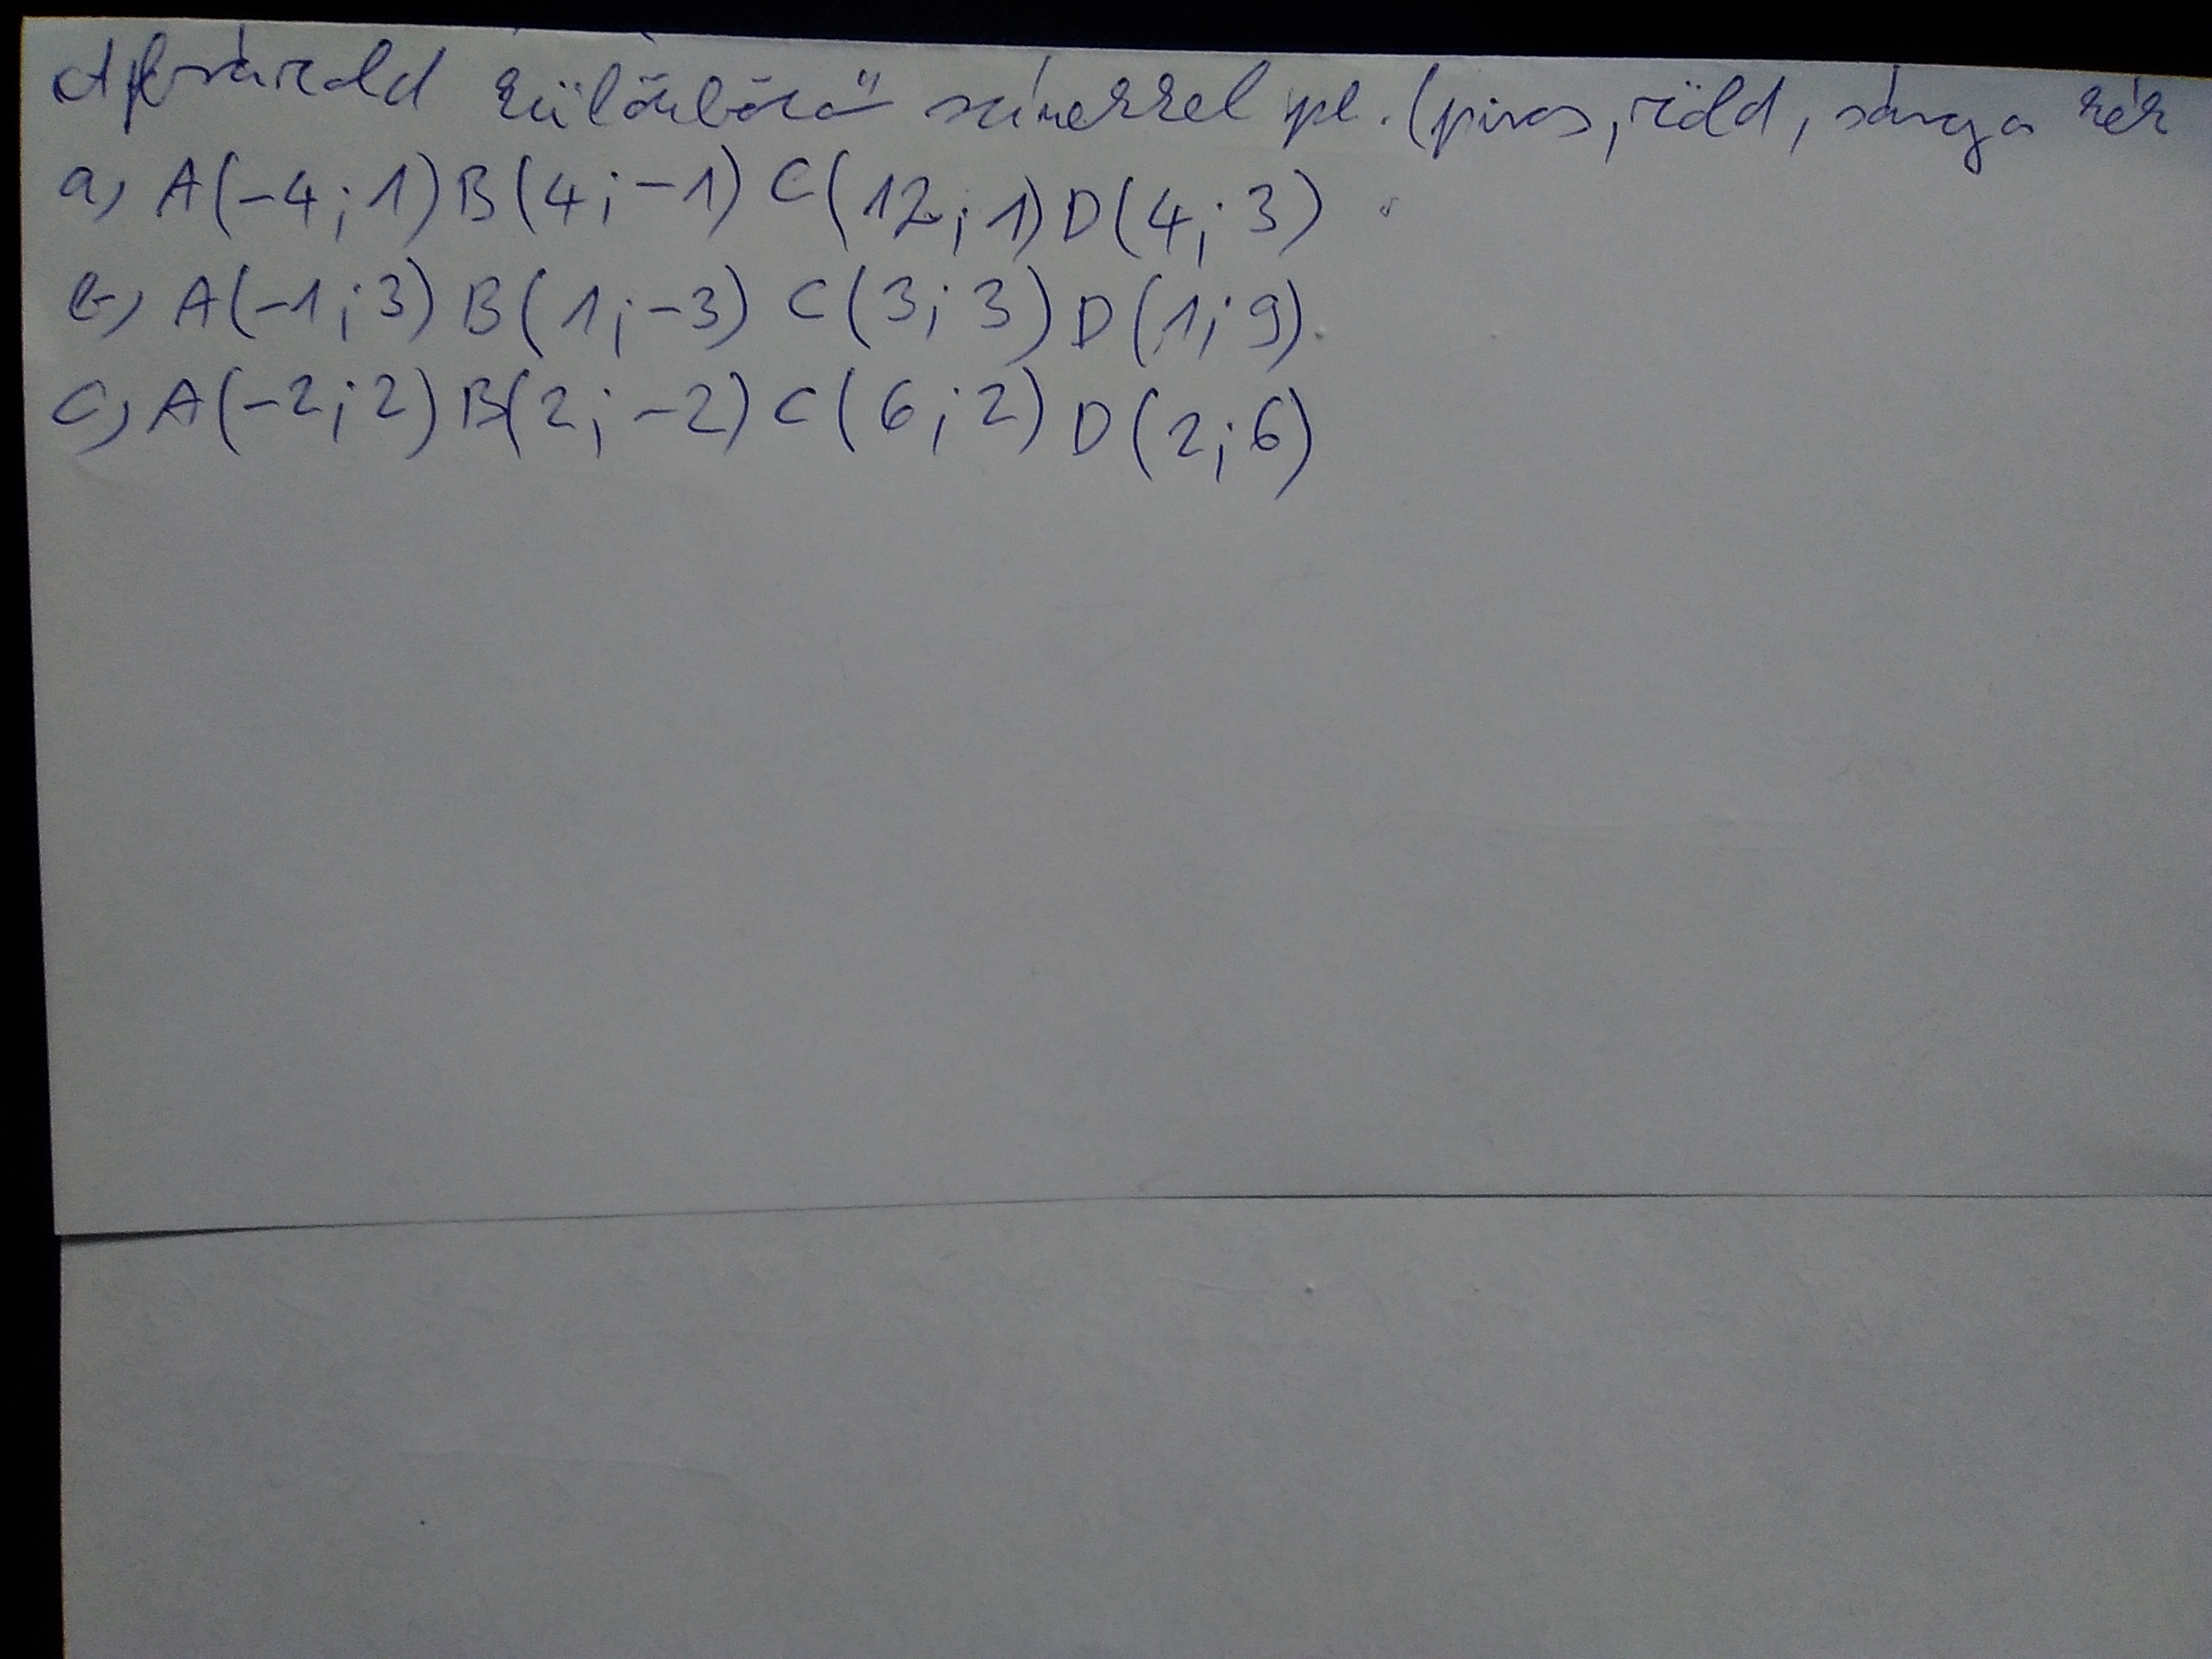 Ábrázold különböző színekkel pl. (piros, zöld, sárga kék
a, A(-4; 1) B(4; -1) C(12; 1) D(4; 3)
b, A(-1; 3) B(1; -3) C(3; 3) D(1; 9).
c, A(-2; 2) B(2; -2) C(6; 2) D(2; 6)